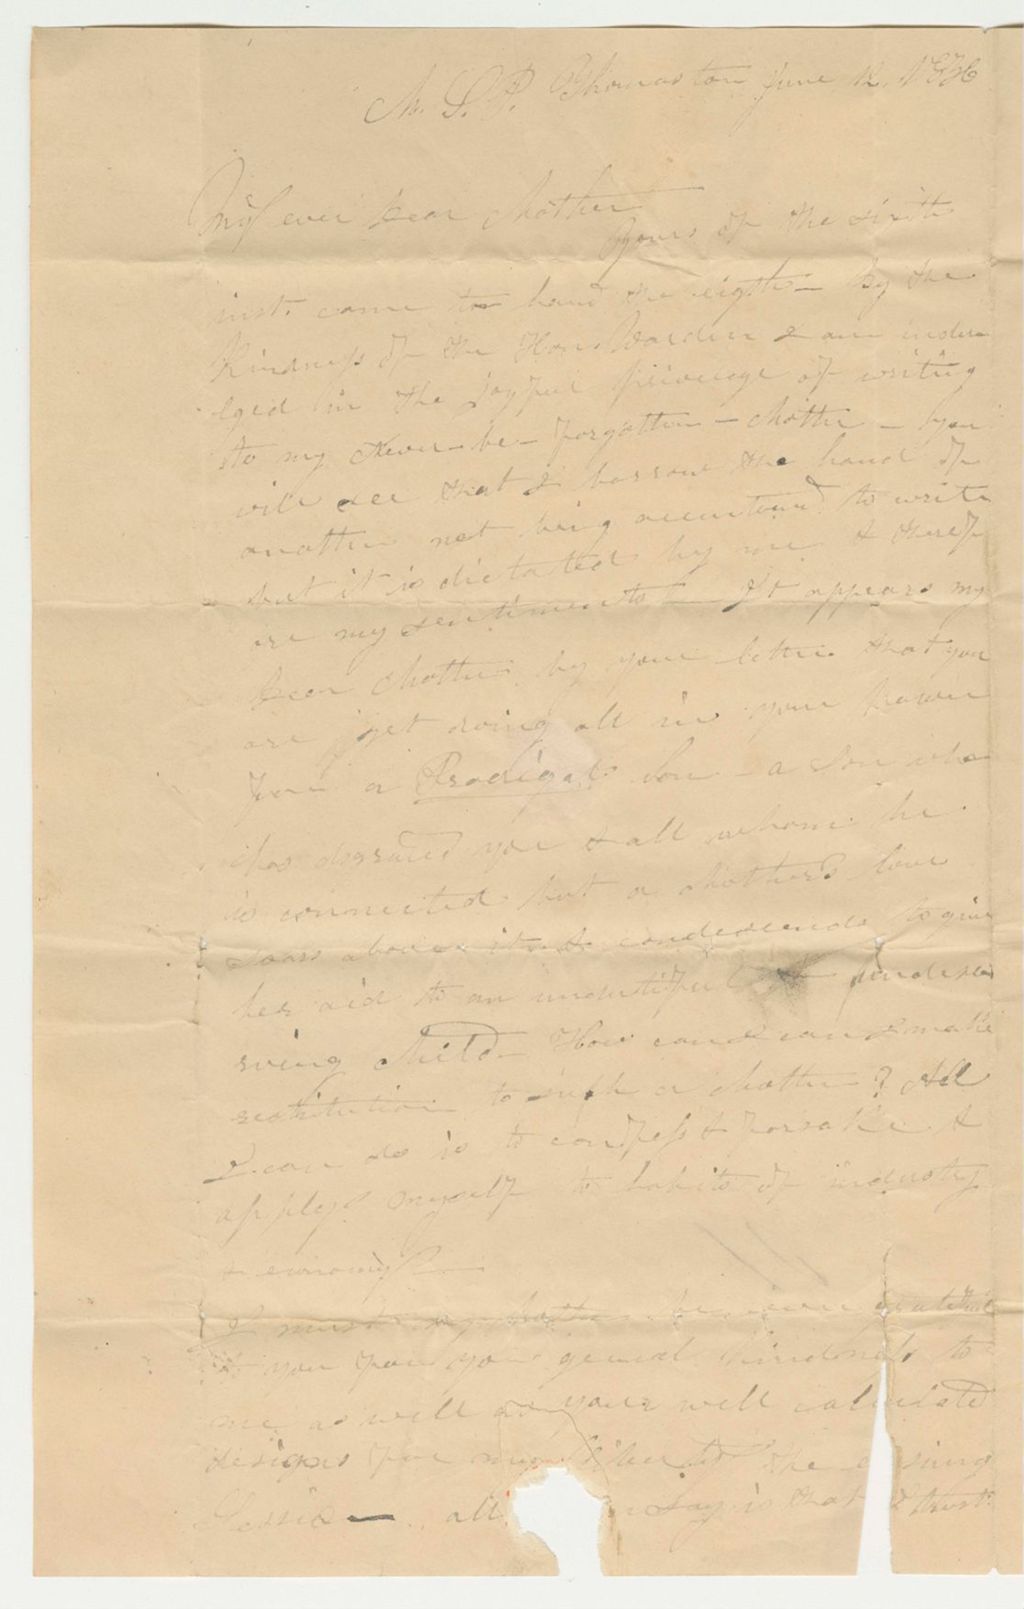 M. S. P. Thomaston June 12. 1836
My ever dear Mother
Yours of the sixth
inst. came to hand the eigth - By the
Kindness of the Hon. Warden I am indu-
lged in the joyful privelege of writing
to my Never-be-forgotten - Mother - You
will see that I borrow the hand of
another not being accustomd to write
but it is dictated by me & thereof
are my sentiments - It appears my
Dear Mother by your letter that you
are yet doing all in your power
for a Prodigal Son - a Son who
has disgraced you & all whom he
is connected but a Mother's love
soars above it & condescends to give
her aid to an undutiful & undese-
rving Child - How can I make
restitution to such a Mother? All
I can do is to confess & forsake &
apply myself to habits of industry
& economy -
I must my Mother be ever grateful
to you for your general kindness to
me as well as your well calculated
designs for my the ensuing
Session - all say is that I trust